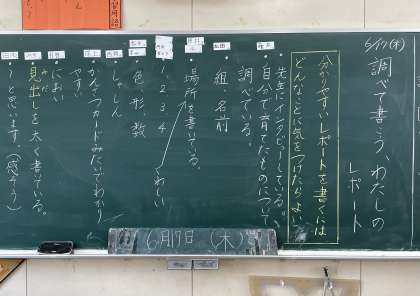 6/17(木)
調べて書こう、わたしの
レポート
分かりやすいレポートを書くには
どんなことに気をつけたらよい
・先生にインタビューしている。
・自分で育てたものについて
調べている。
・組、名前
・場所を書いている。
・1、2、3、4 くわしい
・色、形、数
・しゃしん
・かんさつカードみたいでわかり
やすい
・におい
・見出しを太く書いている。
・〜と思います。(感そう)
6月17日(木)